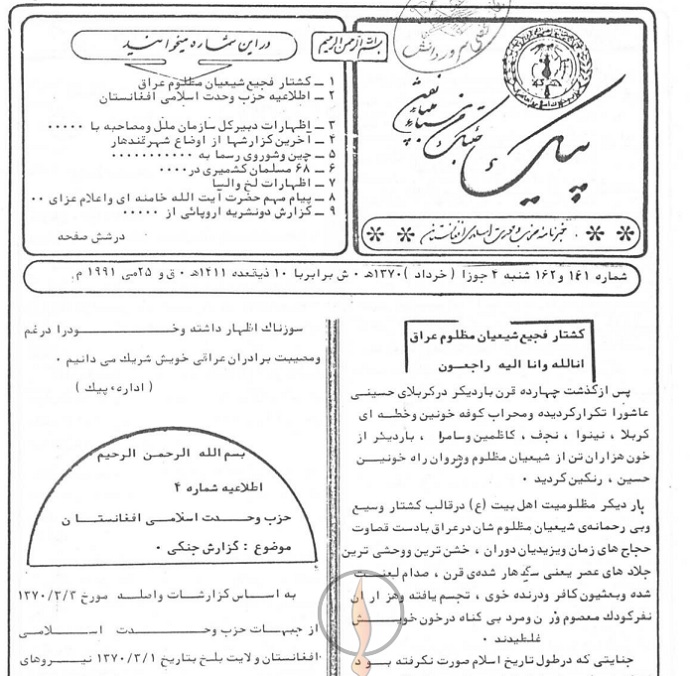 بسم الله الرحمن الرحیم
پیک
خبرنامه حزب وحدت اسلامی افغانستان
در این شماره میخوانید
۱ ـ کشتار فجیع شیعیان مظلوم عراق
۲ ـ اطلاعیه حزب وحدت اسلامی افغانستان
۳ ـ اظهارات دبیرکل سازمان ملل ومصاحبه با ۰۰۰۰۰
۴ ـ آخرین گزارشها از اوضاع شهرقندهار
۵ ـ چین وشوروی رسما به ۰۰۰۰۰۰۰۰۰۰۰
۶ ـ ۶۸ مسلمان کشمیری در۰۰۰۰
۷ ـ اظهارات لخ والسا
۸ ـ پیام مهم حضرت آیت الله خامنه ای واعلام عزای ۰۰
۹ ـ گزارش دونشریه اروپائی از ۰۰۰۰۰
درشش صفحه
شماره ۱۶۱ و ۱۶۲ شنبه ۴ جوزا ( خرداد ) ۱۳۷۰هـ ۰ ش برابربا ۱۰ ذیقعده ۱۴۱۱هـ ۰ ق و ۲۵می ۱۹۹۱ م.
کشتار فجیع شیعیان مظلوم عراق
انالله وانا الیه راجعون
پس ازگذشت چهارده قرن باردیگر درکربلای حسینی
عاشورا تکرارگردیده ومحراب کوفه خونین وخطه ای
کربلا ، نینوا ، نجف ، کاظمین وسامرا ، باردیگر از
خون هزاران تن از شیعیان مظلوم وهروان راه خونین
حسین ، رنگین گردید ۰
بار دیگر مظلومیت اهل بیت (ع) درقالب کشتار وسیع
وبی رحمانه‌ی شیعیان مظلوم شان درعراق بادست قصاوت
حجاج های زمان ویزیدیان دوران ، خشن ترین ووحشی ترین
جلاد های عصر یعنی سگدهار شده‌ی قرن ، صدام لعنت
شده وبعثیون کافر ودرنده خوی ، تجسم یافته وهزاران
نفرکودك معصوم وزن ومرد بی گناه درخون خویش
غلطیدند ۰
جنایتی که درطول تاریخ اسلام صورت نگرفته بود
سوزناك اظهار داشته وخودرا درغم
ومصیبت برادران عراقی خویش شریك می دانیم ۰
( اداره‌ء پیك )
بسم الله الرحمن الرحیم
اطلاعیه شماره ۴
حزب وحدت اسلامی افغانستان
موضوع : گزارش جنگی ۰
به اساس گزارشات واصله مورخ ۱۳۷۰/۳/۳
از جبهات حزب وحدت اسلامی
افغانستان ولایت بلخ بتاریخ ۱۳۷۰/۳/۱ نیروهای